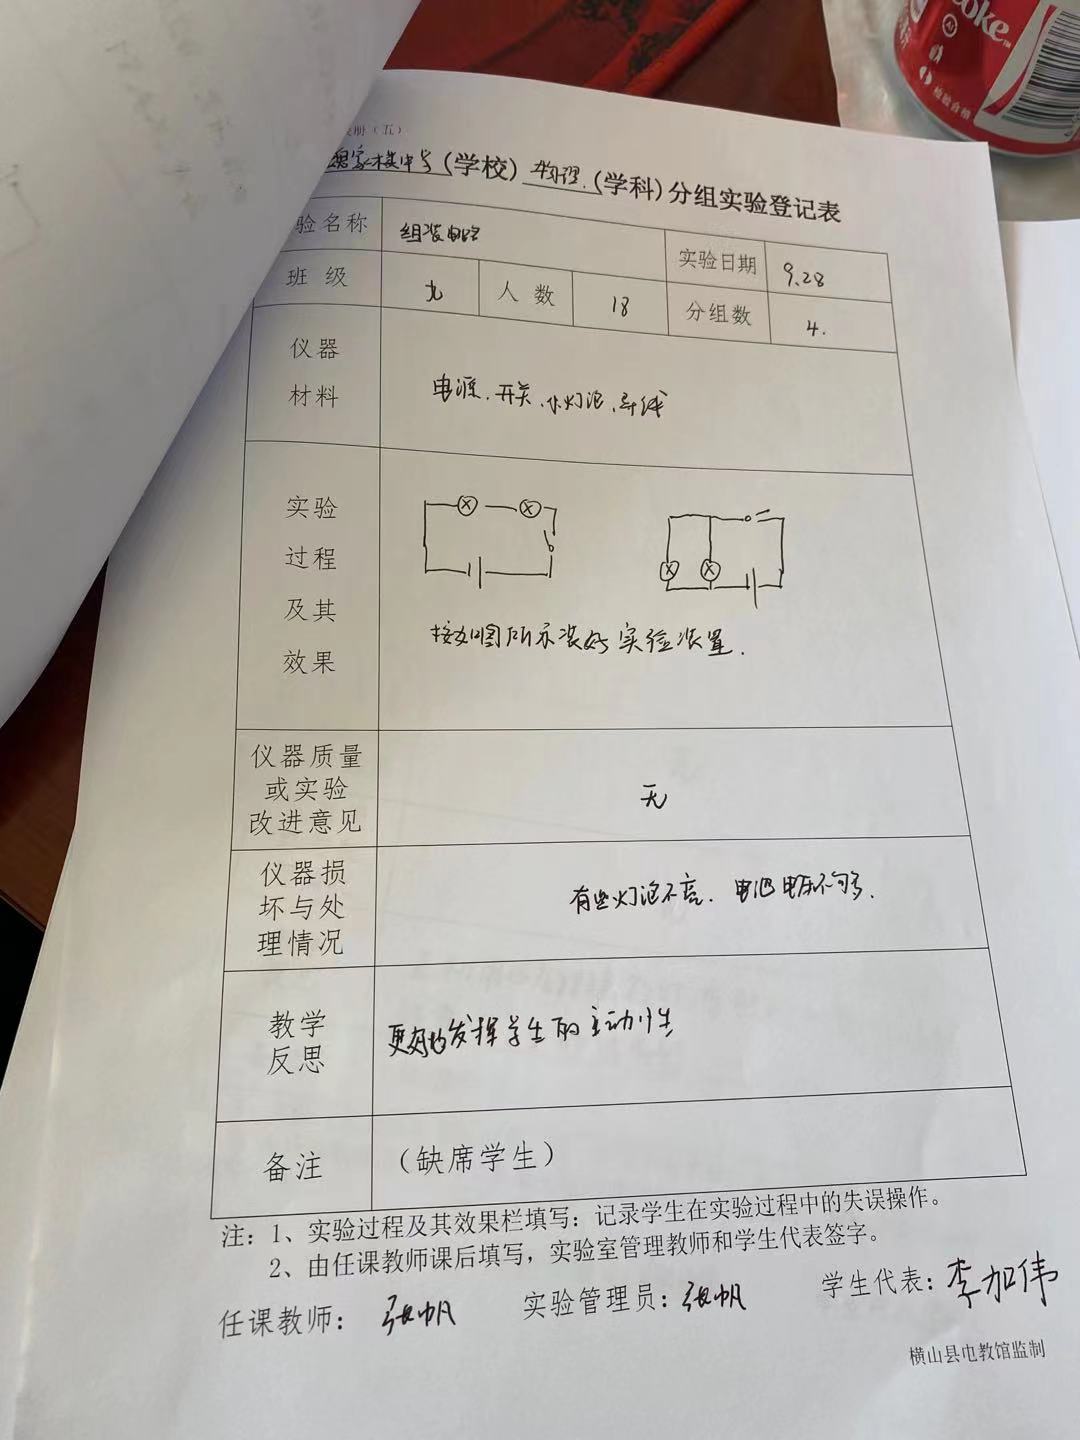 册（五）
魏家楼中学(学校) 物理(学科)分组实验登记表
验名称 组装电路 实验日期 9.28
班 级 九 人 数 18 分组数 4.
仪器
材料
电源、开关、小灯泡、导线
实验
过程
及其
效果
按如图所示装好实验装置.
仪器质量
或实验
改进意见
无
仪器损
坏与处
理情况
有些灯泡不亮. 电池电压不够.
教学
反思
更好的发挥学生的主动性
备注 （缺席学生）
注：1、实验过程及其效果栏填写：记录学生在实验过程中的失误操作。
2、由任课教师课后填写，实验室管理教师和学生代表签字。
任课教师：张帆 实验管理员：张帆 学生代表：李加伟
横山县电教馆监制
Coke
检验合格